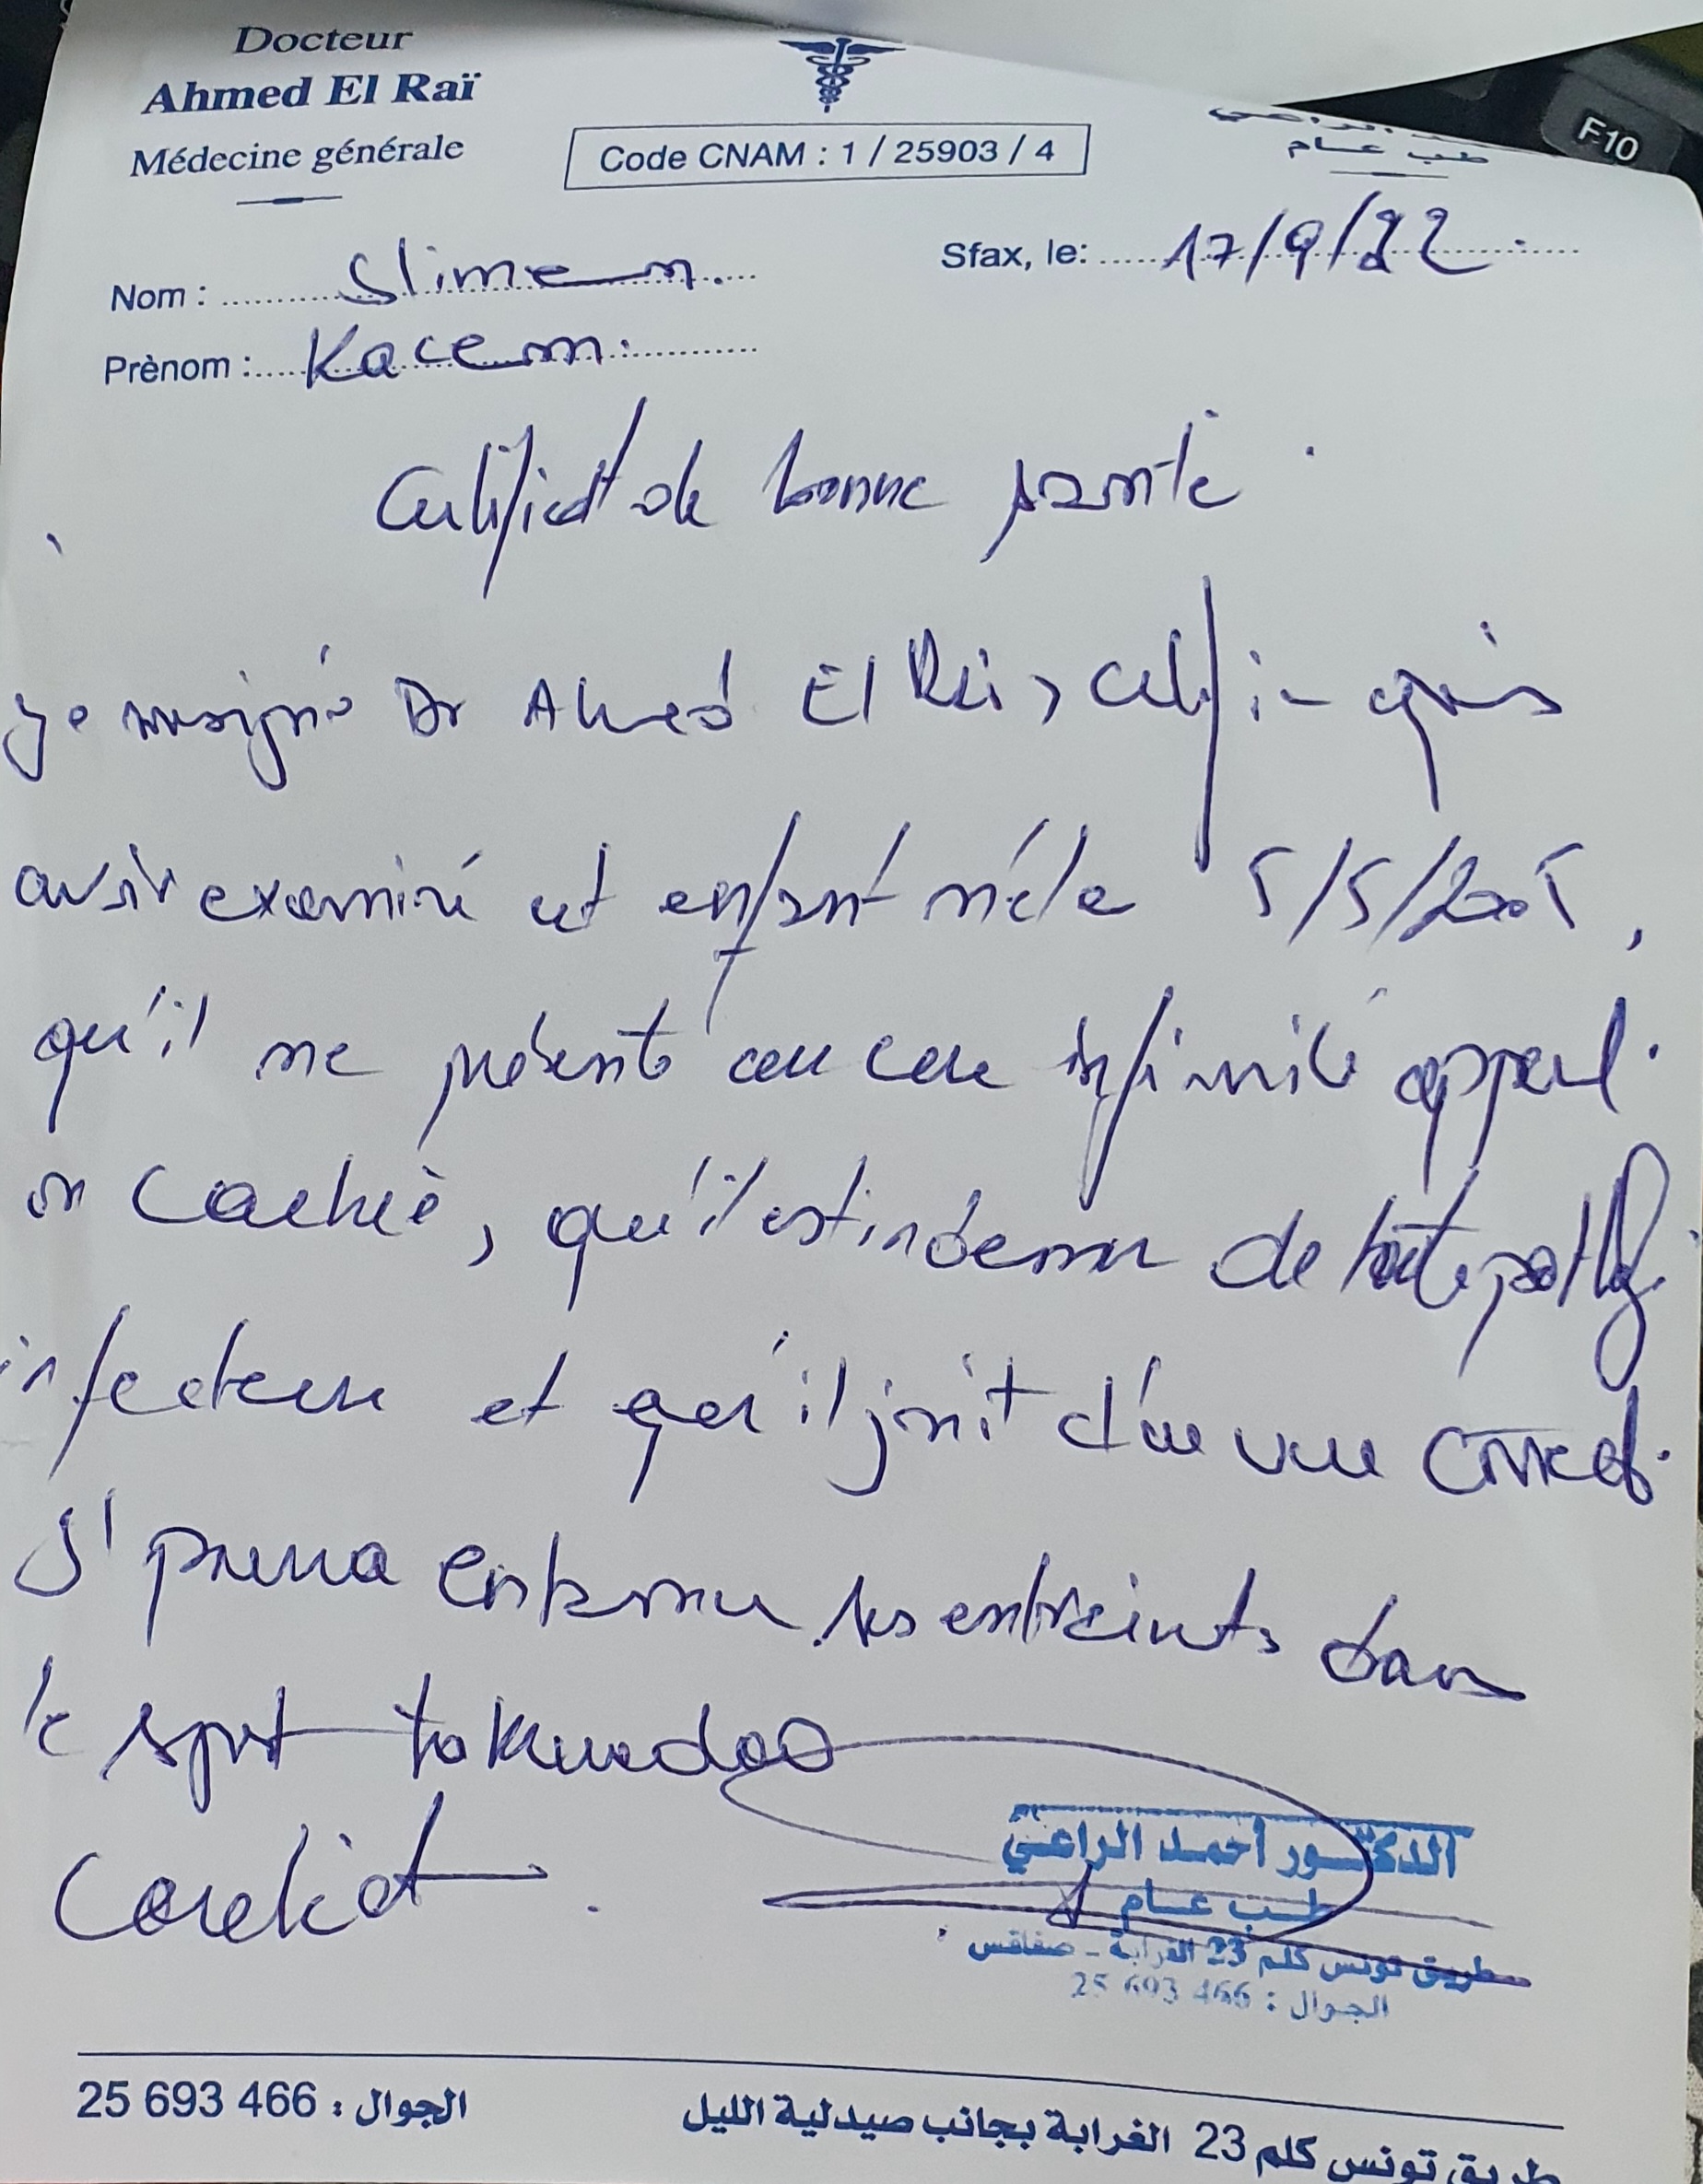 Docteur
Ahmed El Raï
Médecine générale
Code CNAM : 1 / 25903 / 4
طب عـــام
Sfax, le: 17/9/22
Nom : Slimen
Prènom : Kacem
Certificat de bonne santé
Je soussigné Dr Ahmed El Raï, certifie
avoir examiné cet enfant né le 5/5/2005,
qu'il ne présente aucune infirmité appart.
ou cachée, qu'il est indemne de toute patholg.
infectieuse et qu'il jouit d'une vue correcte.
Il pourra entamer les entraints dans
le sport taekwondoo
الدكتــور أحمـد الراعـي
طــب عــام
طريق تونس كلم 23 الغرابة - صفاقس
الجوال : 466 693 25
الجوال : 466 693 25
طريق تونس كلم 23 الغرابة بجانب صيدلية الليل
F10